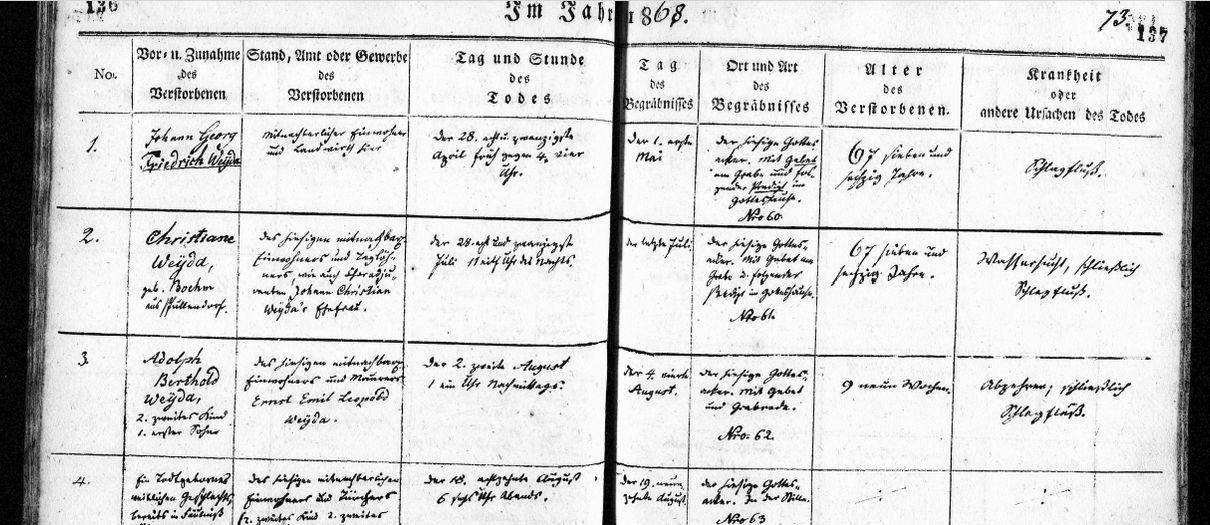 136
Im Jahr 1868.
73.
137
No.
Vor- u. Zunahme
des
Verstorbenen.
Stand, Amt oder Gewerbe
des
Verstorbenen
Tag und Stunde
des
Todes
Tag
des
Begräbnisses
Ort und Art
des
Begräbnisses
Alter
des
Verstorbenen.
Krankheit
oder
andere Ursachen des Todes
1.
Johann Georg
Friedrich Weyda
mitnachbarlicher Einwohner
und Landwirth hier
der 28. acht u. zwanzigste
April früh gegen 4, vier
Uhr.
der 1. erste
Mai
der hiesige Gottes
acker. Mit Gebet
am Grabe und fol-
gender Predigt im
Gotteshause.
Nro 60.
67 sieben und
sechzig Jahre.
Schlagfluß.
2.
Christiane
Weyda,
geb. Boehm
aus Pullendorf.
des hiesigen mitnachbarl.
Einwohners und Taglöh-
ners, wie auch
Johann Christian
Weyda's Ehefrau.
der 28. acht und zwanzigste
Juli 11 eilf Uhr des Nachts.
der letzte Juli.
der hiesige Gottes-
acker. Mit Gebet am
Grabe u. folgender
Predigt im Gotteshause.
Nro 61.
67 sieben und
sechzig Jahre.
Wassersucht, schließlich
Schlagfluß.
3
Adolph
Berthold
Weyda,
2. zweites Kind
1. erster Sohn
des hiesigen mitnachbarl.
Einwohners und Maurers
Ernst Emil Leopold
Weyda.
der 2. zweite August
1 ein Uhr Nachmittags.
der 4. vierte
August.
der hiesige Gottes-
acker. Mit Gebet
und Grabrede.
Nro. 62.
9 neun Wochen.
Abzehren, schließlich
Schlagfluß.
4.
Ein Todtgebornes
weiblichen Geschlechts,
bereits in Fäulniß
des hiesigen mitnachbarlichen
Einwohners und Tünchers
(2. zweites Kind 2. zweites
der 18. achtzehnte August
6 sechs Uhr Abends.
der 19. neun-
zehnte August.
der hiesige Gottes-
acker. In der Stille.
Nro 63